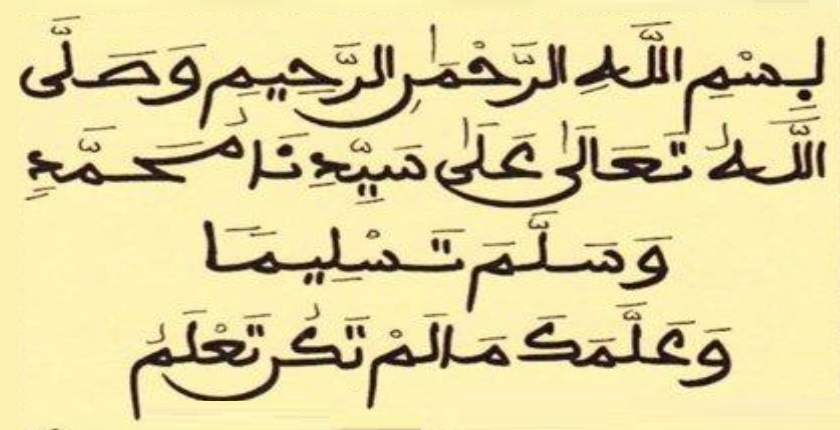 بِسْمِ اللَّهِ الرَّحْمَٰنِ الرَّحِيمِ وَصَلَّى
اللَّهُ تَعَالَىٰ عَلَىٰ سَيِّدِنَا مُحَمَّدٍ
وَسَلَّمَ تَسْلِيمًا
وَعَلَّمَكَ مَا لَمْ تَكُن تَعْلَمُ